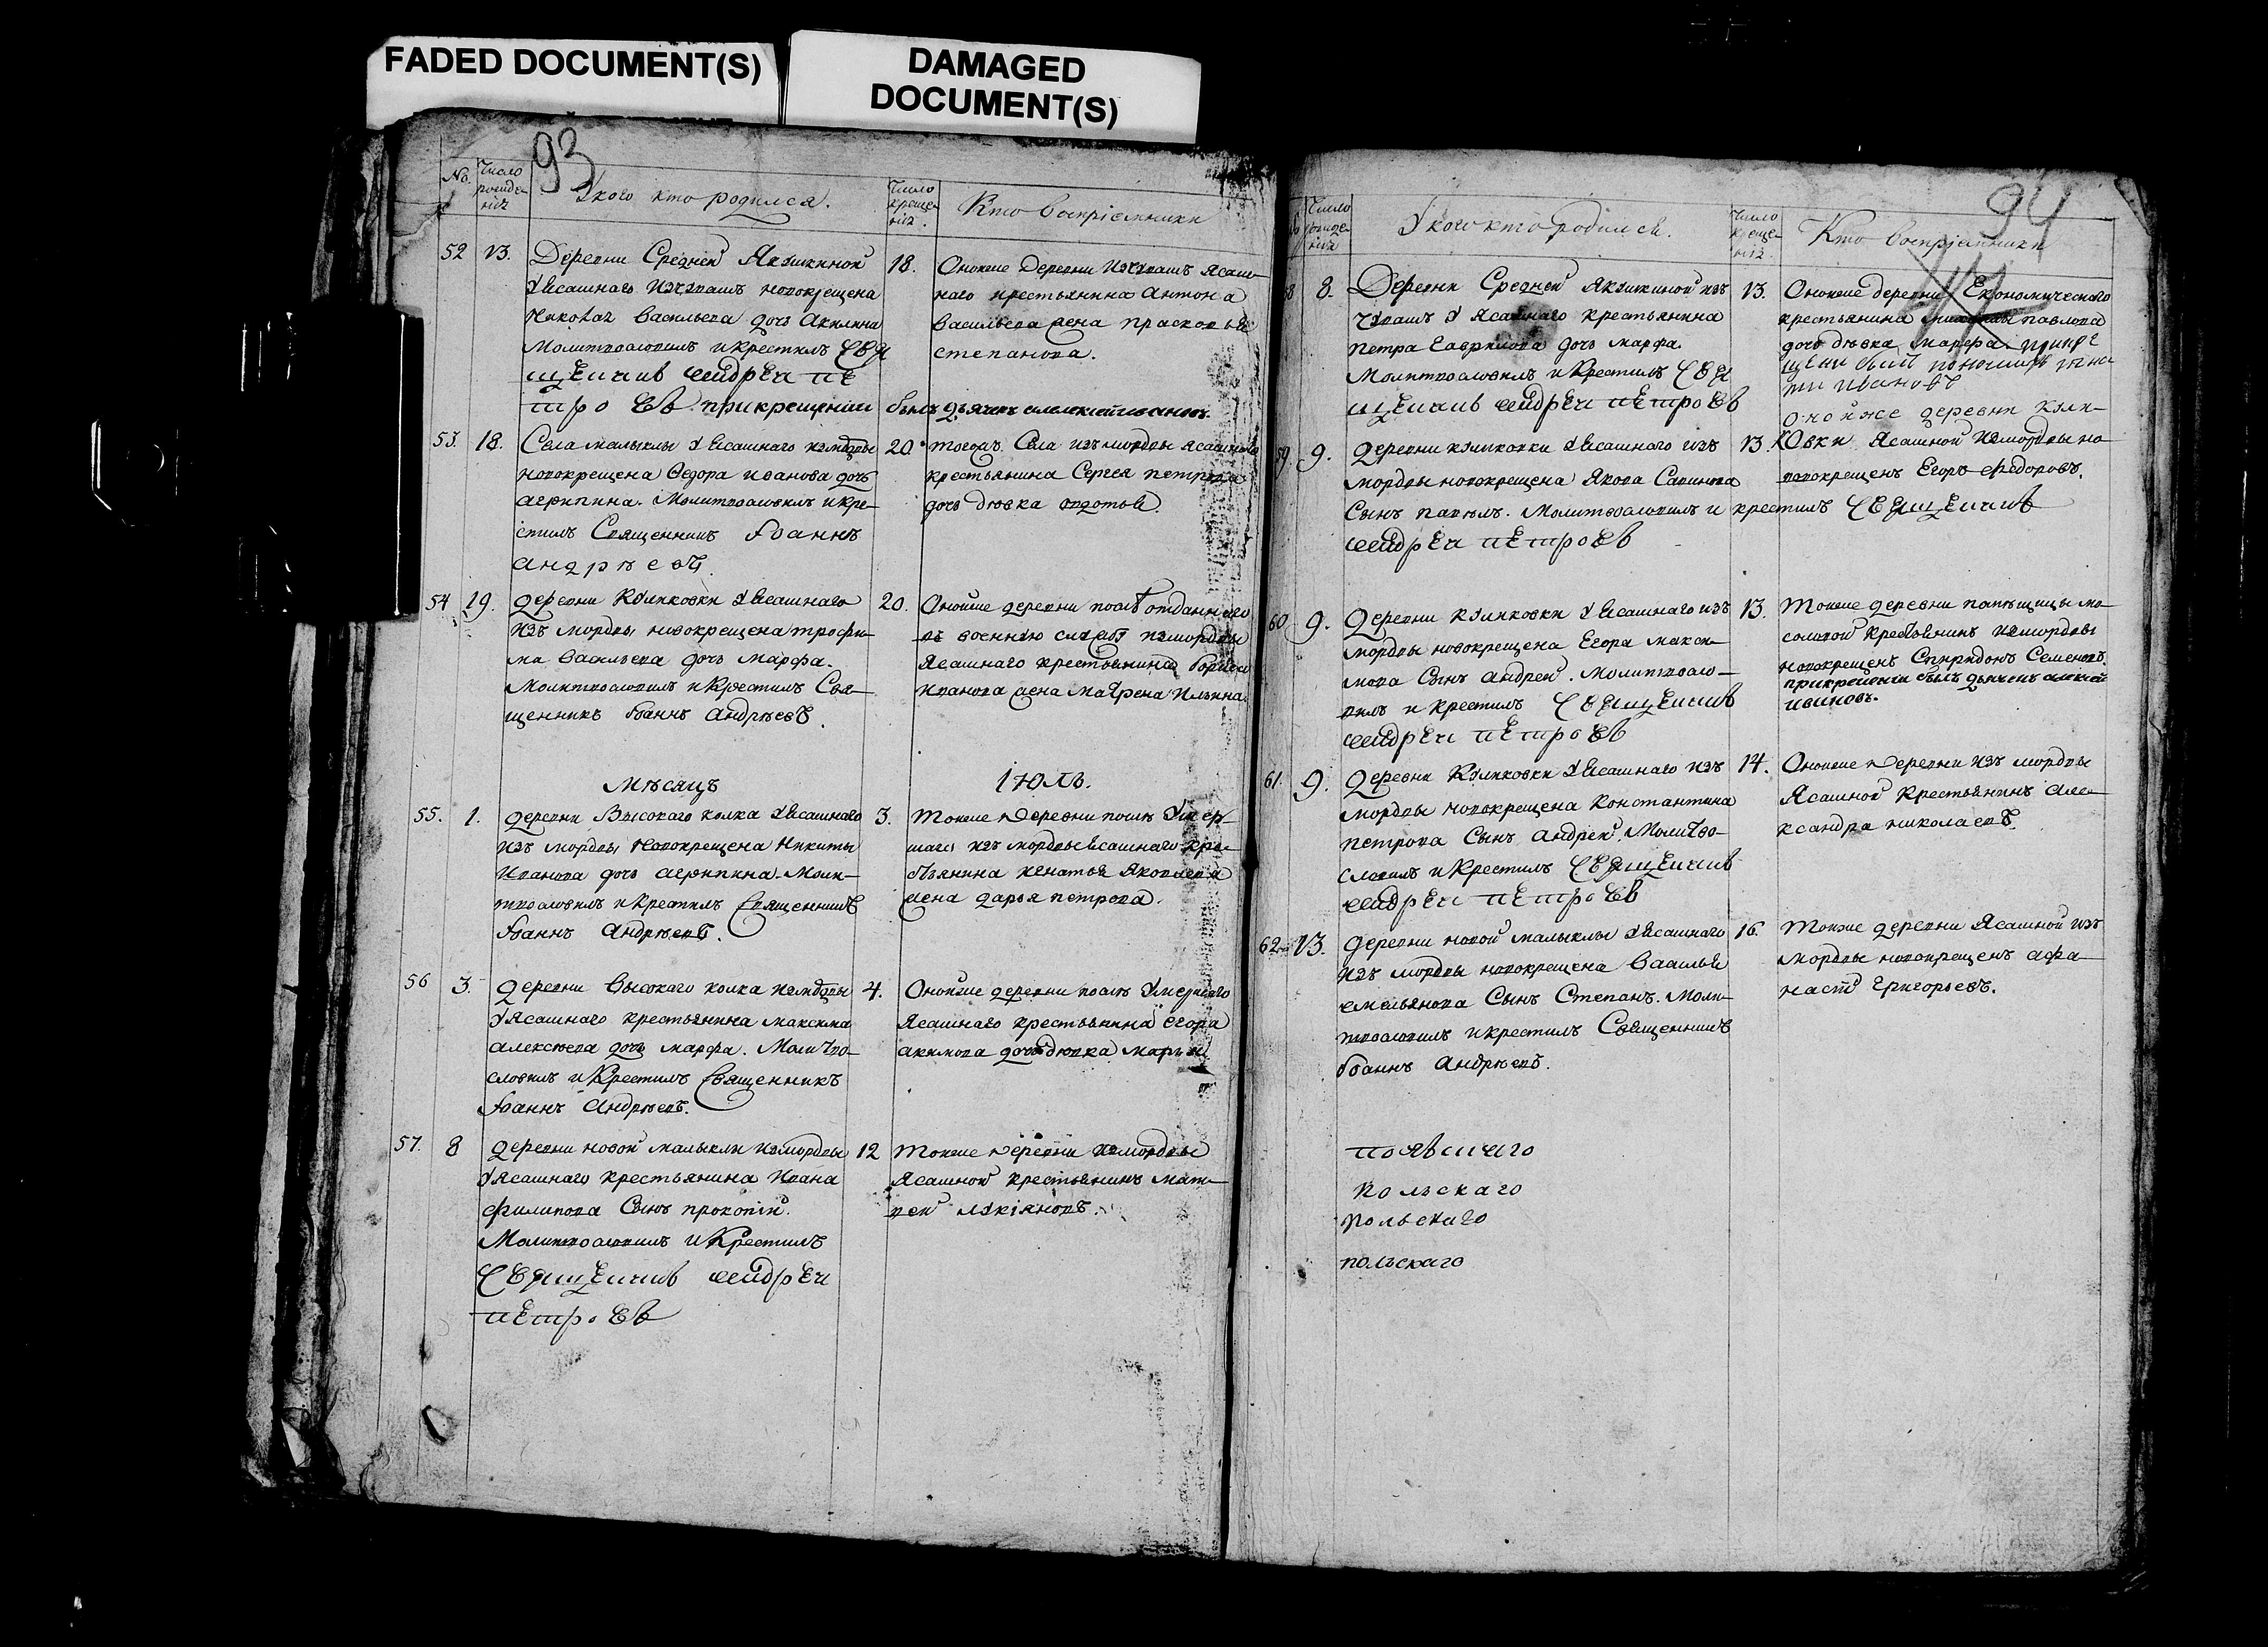 FADED DOCUMENT(S)
DAMAGED
DOCUMENT(S)
93
No.
Число рожде-нія
У кого кто родился.
Число креще-нія.
Кто восприемники
52
13.
Деревни Средней Якушкиной
у Ясашнаго изчувашъ новокрещена
Николая Васильева дочь Акилина
Молитвословилъ и крестилъ Свя
щенникъ Андрей Пе
тровъ. при крещении былъ дьячекъ алексей ивановъ.
18.
Оноиже деревни изчувашъ ясаш-
наго крестьянина Антона
Васильева жена Прасковья
степанова.
53.
18.
Села малыклы у Ясашнаго измордвы
новокрещена Ѳедора иванова дочь
агрипина. Молитвословилъ и кре-
стилъ Священникъ Иоаннъ
андрѣевъ.
20.
тогожъ Села изъ мордвы ясашнаго
крестьянина Сергея петрова
дочь дѣвка авдотья.
54
19.
деревни Куликовки у Ясашнаго
изъ мордвы новокрещена трофи-
ма Васильева дочь марфа.
Молитвословилъ и Крестилъ Свя-
щенникъ Иоаннъ Андрѣевъ.
20.
Оноиже деревни послѣ отданнаго
въ военную службу измордвы
Ясашнаго крестьянина бориса
иванова жена Матрена Ильина.
Мѣсяцъ
Iюль.
55.
1.
деревни Высокаго колка у Ясашнаго
изъ мордвы Новокрещена Никиты
Иванова дочь агрипина. Моли-
твословилъ и крестилъ Священникъ
Иоаннъ Андрѣевъ.
3.
Тоиже деревни послѣ Умер-
шаго изъ мордвы Ясашнаго кре-
стьянина игнатья Яковлева
жена дарья петрова.
56
3.
деревни Высокаго колка измордвы
у Ясашнаго крестьянина максима
алексѣева дочь марфа. Молитво-
словилъ и Крестилъ Священникъ
Иоаннъ Андрѣевъ.
4.
Оноиже деревни послѣ Умершаго
Ясашнаго крестьянина егора
акимова дочь дѣвка марья
57.
8
деревни новой малыклы измордвы
у Ясашнаго крестьянина Ивана
филипова Сынъ прокопій.
Молитвословилъ и Крестилъ
Священникъ Андрей
Петровъ
12
Тоиже деревни измордвы
Ясашной крестьянинъ мат-
вей лукіяновъ.
94
Число рожде-нія
У кого кто родился.
Число креще-нія.
Кто восприемники
58
8.
Деревни Средней Якушкиной изъ
чувашъ у Ясашнаго крестьянина
Петра Гаврилова дочь марфа.
Молитвословилъ и Крестилъ Свя
щенникъ Андрей Петровъ
13.
Оноиже деревни Економическаго
крестьянина павлова
дочь дѣвка марфа. при кре
щени былъ
ивановъ
59
9.
деревни куликовки у Ясашнаго изъ
мордвы новокрещена Якова Савинова
Сынъ павелъ. Молитвословилъ и крестилъ Священникъ
Андрей Петровъ
13.
онойже деревни Кули-
ковки Ясашной измордвы но-
вокрещенъ Егоръ Федоровъ.
60
9.
деревни куликовки у Ясашнаго изъ
мордвы новокрещена Егора макси-
мова Сынъ андрей. Молитвосло-
вилъ и крестилъ Священникъ
Андрей Петровъ
13.
Тоиже деревни
крестьянинъ измордвы
новокрещенъ Спиридонъ Семеновъ.
при крещении былъ дьячекъ алексей
ивановъ.
61.
9.
деревни Куликовки у Ясашнаго изъ
мордвы новокрещена Константина
петрова Сынъ андрей. Молитво-
словилъ и Крестилъ Священникъ
Андрей Петровъ
14.
Оноиже деревни изъ мордвы
Ясашной крестьянинъ але-
ксандра николаевъ.
62
13.
деревни новой малыклы у Ясашнаго
изъ мордвы новокрещена Василья
емельянова Сынъ Степанъ. Моли-
твословилъ и крестилъ Священникъ
Иоаннъ Андрѣевъ.
16.
Тоиже деревни Ясашной изъ
мордвы новокрещенъ афа-
насій Григорьевъ.
польскаго
польскаго
польскаго